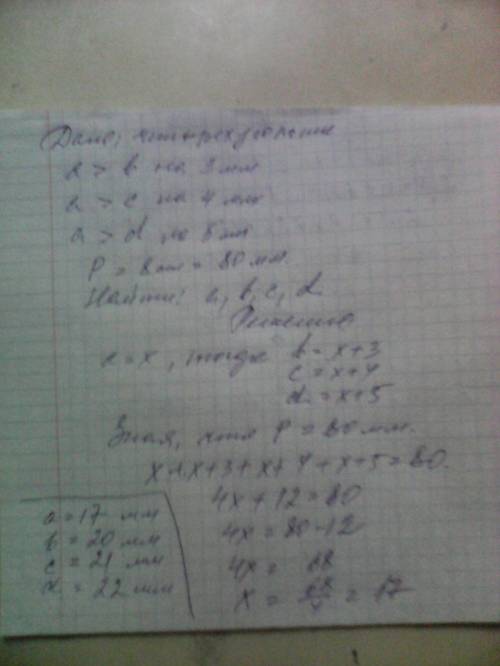 Дано: четырехугольник
a > b на 3 мм
a > c на 4 мм
a > d на 5 мм
P = 8 см = 80 мм.
Найти: a, b, c, d
Решение
a = x, тогда b = x+3
c = x+4
d = x+5
Зная, что P = 80 мм.
x+x+3+x+4+x+5=80.
4x+12=80
4x=80-12
4x = 68
x = 68/4 = 17
a = 17 мм
b = 20 мм
c = 21 мм
d = 22 мм